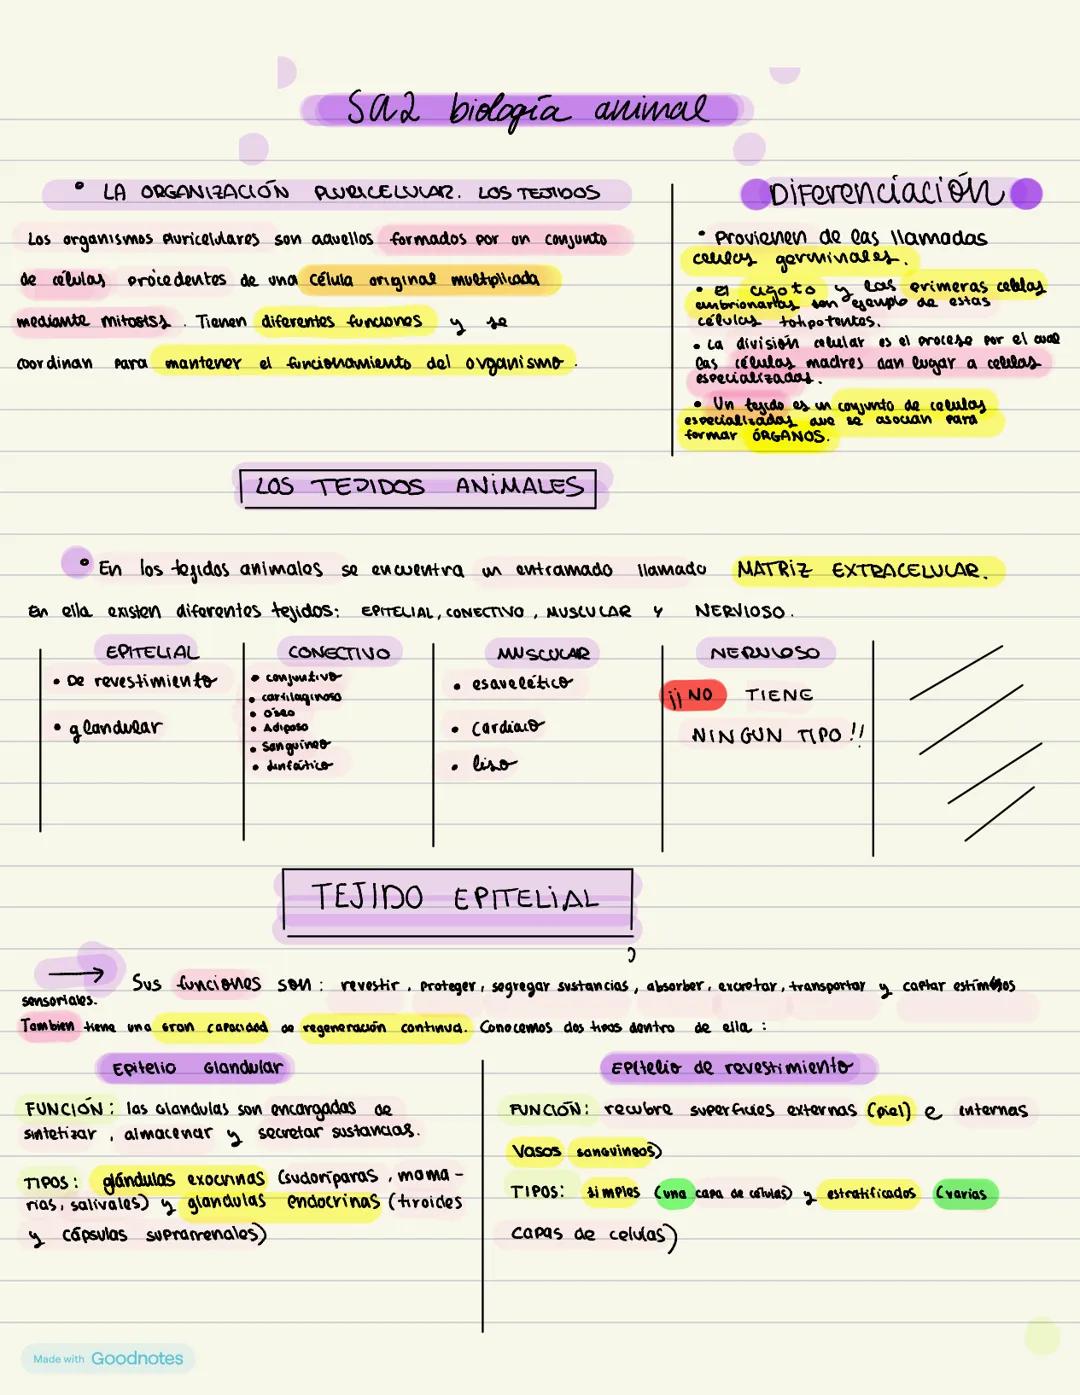 SA2 biología animal
• LA ORGANIZACIÓN PLURICELULAR. LOS TEJIDOS
Los organismos pluricelulares son aquellos formados por un conjunto
de células procedentes de una célula original multiplicada
mediante mitosis. Tienen diferentes funciones y se
coordinan para mantener el funcionamiento del organismo.
Diferenciación
• Provienen de las llamadas
celulas germinales.
• El cigoto y las primeras celulas
embrionarias son ejemplo de estas
células totipotentes.
• La división celular es el proceso por el cual
las células madres dan lugar a celulas
especializadas.
• Un tejido es un conjunto de celulas
especializadas que se asocian para
formar ÓRGANOS.
LOS TEJIDOS ANIMALES
• En los tejidos animales se encuentra un entramado llamado MATRIZ EXTRACELULAR.
En ella existen diferentes tejidos: EPITELIAL, CONECTIVO, MUSCULAR Y NERVIOSO.
EPITELIAL
• De revestimiento
• glandular
CONECTIVO
• conjuntivo
• cartilaginoso
• óseo
• Adiposo
• Sanguíneo
• linfático
MUSCULAR
• esquelético
• Cardiaco
• liso
NERVIOSO
¡¡ NO TIENE
NINGUN TIPO !!
TEJIDO EPITELIAL
→ Sus funciones son: revestir, proteger, segregar sustancias, absorber, excretar, transportar y captar estímulos
sensoriales.
Tambien tiene una gran capacidad de regeneración continua. Conocemos dos tipos dentro de ella:
Epitelio Glandular
FUNCIÓN: las glandulas son encargadas de
sintetizar, almacenar y secretar sustancias.
TIPOS: glándulas exocrinas (sudoríparas, mama-
rias, salivales) y glandulas endocrinas (tiroides
y cápsulas suprarrenales)
Epitelio de revestimiento
FUNCIÓN: recubre superficies externas (piel) e internas
Vasos sanguineos)
TIPOS: simples (una capa de células) y estratificados (varias
capas de celulas)
Made with Goodnotes